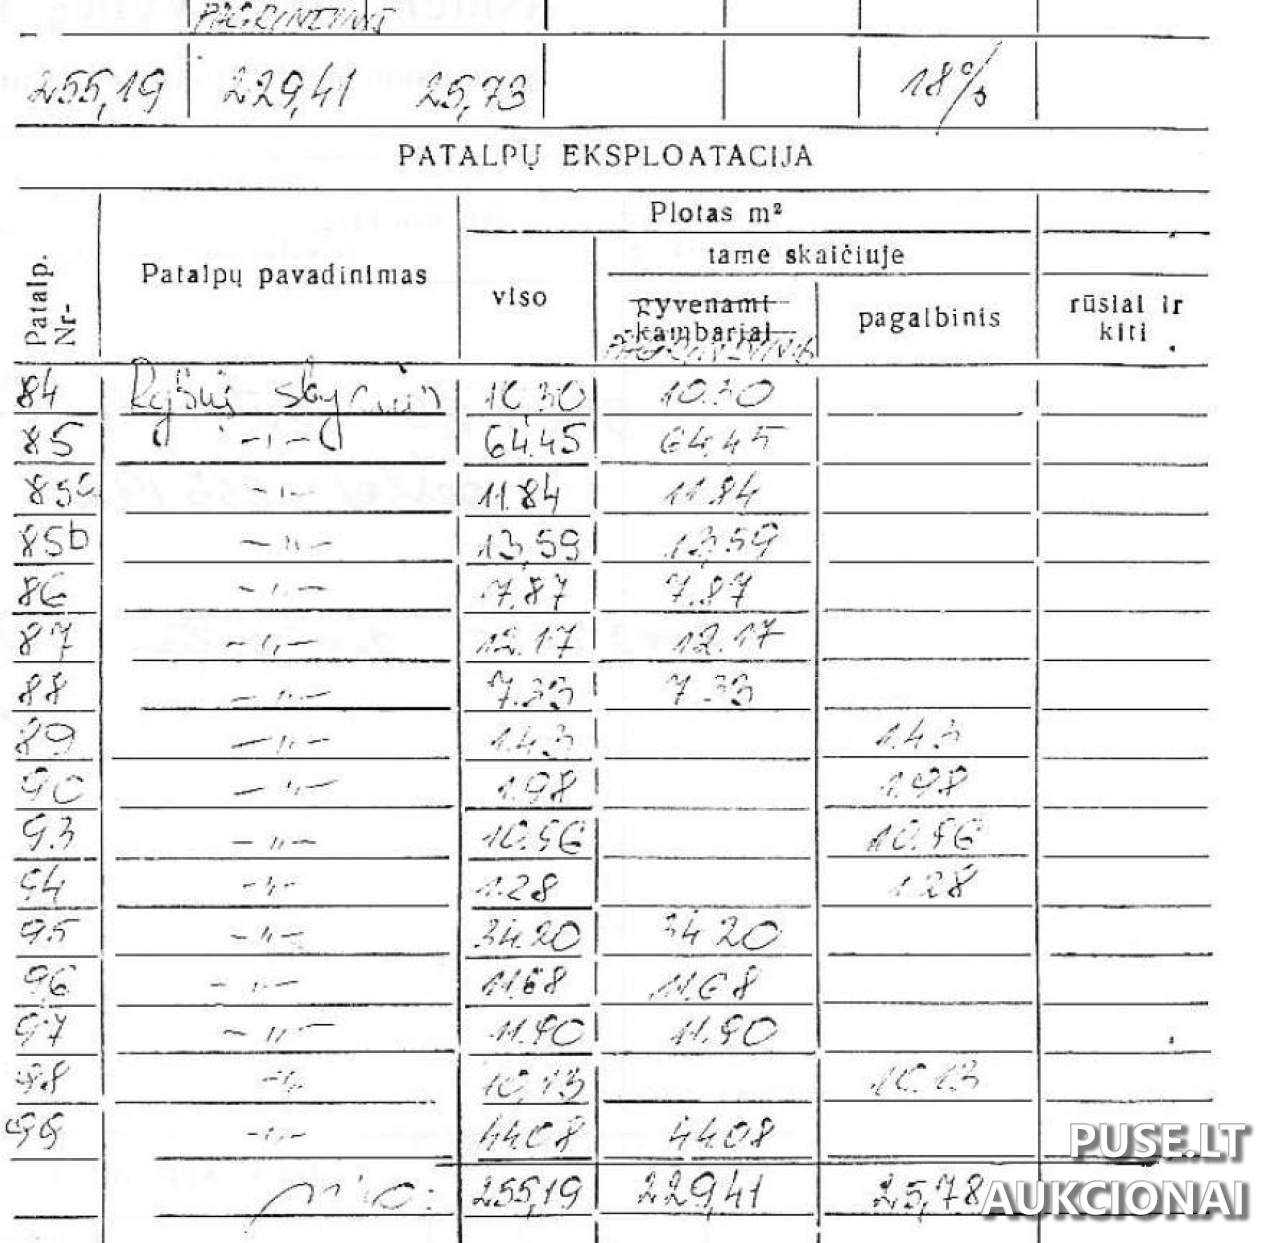 PAGRINDINIS
255,19 229,41 25,73 18%
PATALPŲ EKSPLOATACIJA
Patalp. Nr-
Patalpų pavadinimas
Plotas m²
viso
tame skaičiuje
gyvenami kambariai
PAGRINDINIS
pagalbinis
rūsiai ir kiti
84 Ryšių skyrius 10,30 10.30
85 -"- 64.45 64.45
85a -"- 11.84 11.84
85b -"- 13,59 13,59
86 -"- 7.87 7.87
87 -"- 12.17 12.17
88 -"- 7.33 7.33
89 -"- 1.43 1.43
90 -"- 1.98 1.98
93 -"- 10.96 10.96
94 -"- 1.28 1.28
95 -"- 34.20 34.20
96 -"- 11.68 11.68
97 -"- 11.90 11.90
98 -"- 10,13 10.13
99 -"- 44.08 44.08
viso: 255,19 229,41 25,78
PUSE.LT
AUKCIONAI